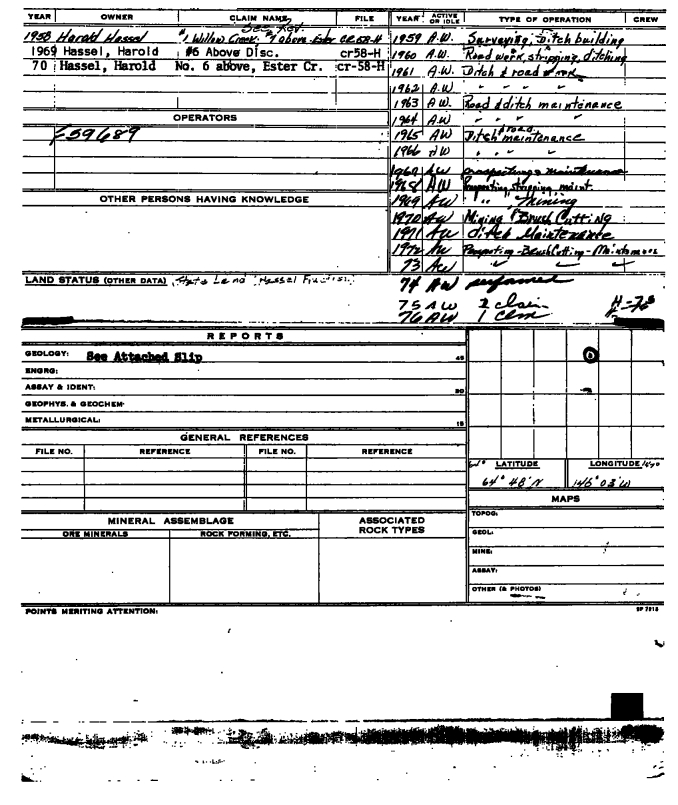 YEAR OWNER CLAIM NAME FILE YEAR ACTIVE OR IDLE TYPE OF OPERATION CREW
See Rev.
1958 Harold Hassel #1 Willow Creek, #7 above Ester CR 58-H 1959 A.W. Surveying, Ditch building
1969 Hassel, Harold #6 Above Disc. cr58-H 1960 A.W. Road work, stripping, ditching
70 Hassel, Harold No. 6 above, Ester Cr. cr-58-H 1961 A.W. Ditch & road work
1962 A.W. " " "
1963 A.W. Road & ditch maintenance
OPERATORS 1964 A.W. " " "
F59689 1965 AW Ditch & road maintenance
1966 AW " " "
AW prospecting & maintenance
1968 AW Prospecting, stripping, maint.
OTHER PERSONS HAVING KNOWLEDGE 1969 AW " " Mining
1970 AW Mining & Brush Cutting
1971 AW ditch Maintenance
1972 AW Prospecting - Brush Cutting - Maintenance
73 AW " " "
LAND STATUS (OTHER DATA) State Land Hassel Fraction 74 AW performed
75 AW 2 claim
76 AW 1 clm
REPORTS
GEOLOGY: See Attached Slip 45
ENGRG:
ASSAY & IDENT: 30
GEOPHYS. & GEOCHEM:
METALLURGICAL: 15
GENERAL REFERENCES
FILE NO. REFERENCE FILE NO. REFERENCE
LATITUDE LONGITUDE
64° 48' N 148° 03' W
MAPS
MINERAL ASSEMBLAGE ASSOCIATED ROCK TYPES TOPOG:
ORE MINERALS ROCK FORMING, ETC. GEOL:
MINE:
ASSAY:
OTHER (& PHOTOS)
POINTS MERITING ATTENTION: SP 7215